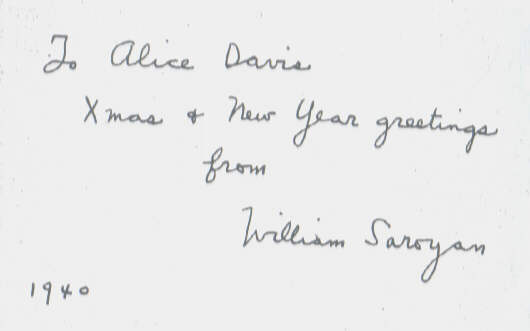 To Alice Davis
Xmas & New Year greetings
from
William Saroyan
1940